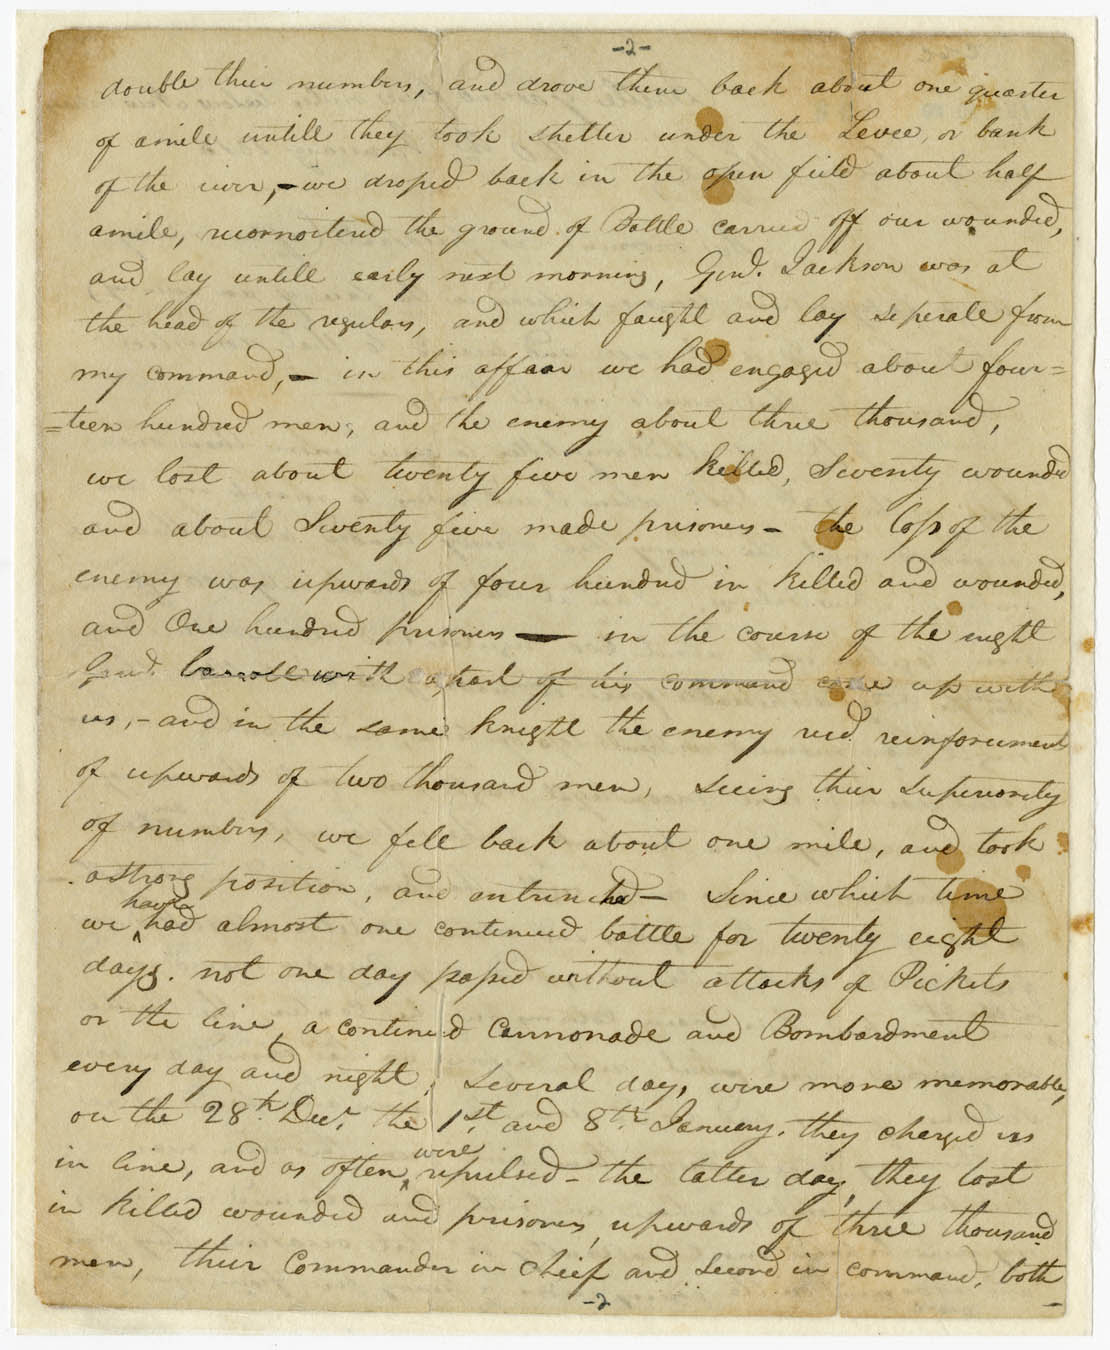 -2-
double their numbers, and drove them back about one quarter
of amile untill they took shelter under the Levee, or bank
of the river, - we droped back in the open field about half
amile, reconnoitered the ground of Battle carried off our wounded,
and lay untill early next morning, Genl. Jackson was at
the head of the regulars, and which faught and lay seperate from
my command, - in this affair we had engaged about four=
=teen hundred men, and the enemy about three thousand,
we lost about twenty five men killed, Seventy wounded
and about Seventy five made prisoners - the loss of the
enemy was upwards of four hundred in killed and wounded,
and One hundred prisoners — in the course of the night
Genl. Carroll with apart of his command came up with
us, - and in the same knight the enemy recd. reinforcement
of upwards of two thousand men, seeing their superiority
of numbers, we fell back about one mile, and took
astrong position, and entrenched - Since which time
we have had almost one continued battle for twenty eight
days. not one day passed without attacks of Pickets
or the line, a continued Cannonade and Bombardment
every day and night, several days were more memorable,
on the 28th. Decr. the 1st. and 8th. January. they charged us
in line, and as often were repulsed - the latter day, they lost
in killed wounded and prisoners, upwards of three thousand
men, their Commander in chief and second in command, both
-2